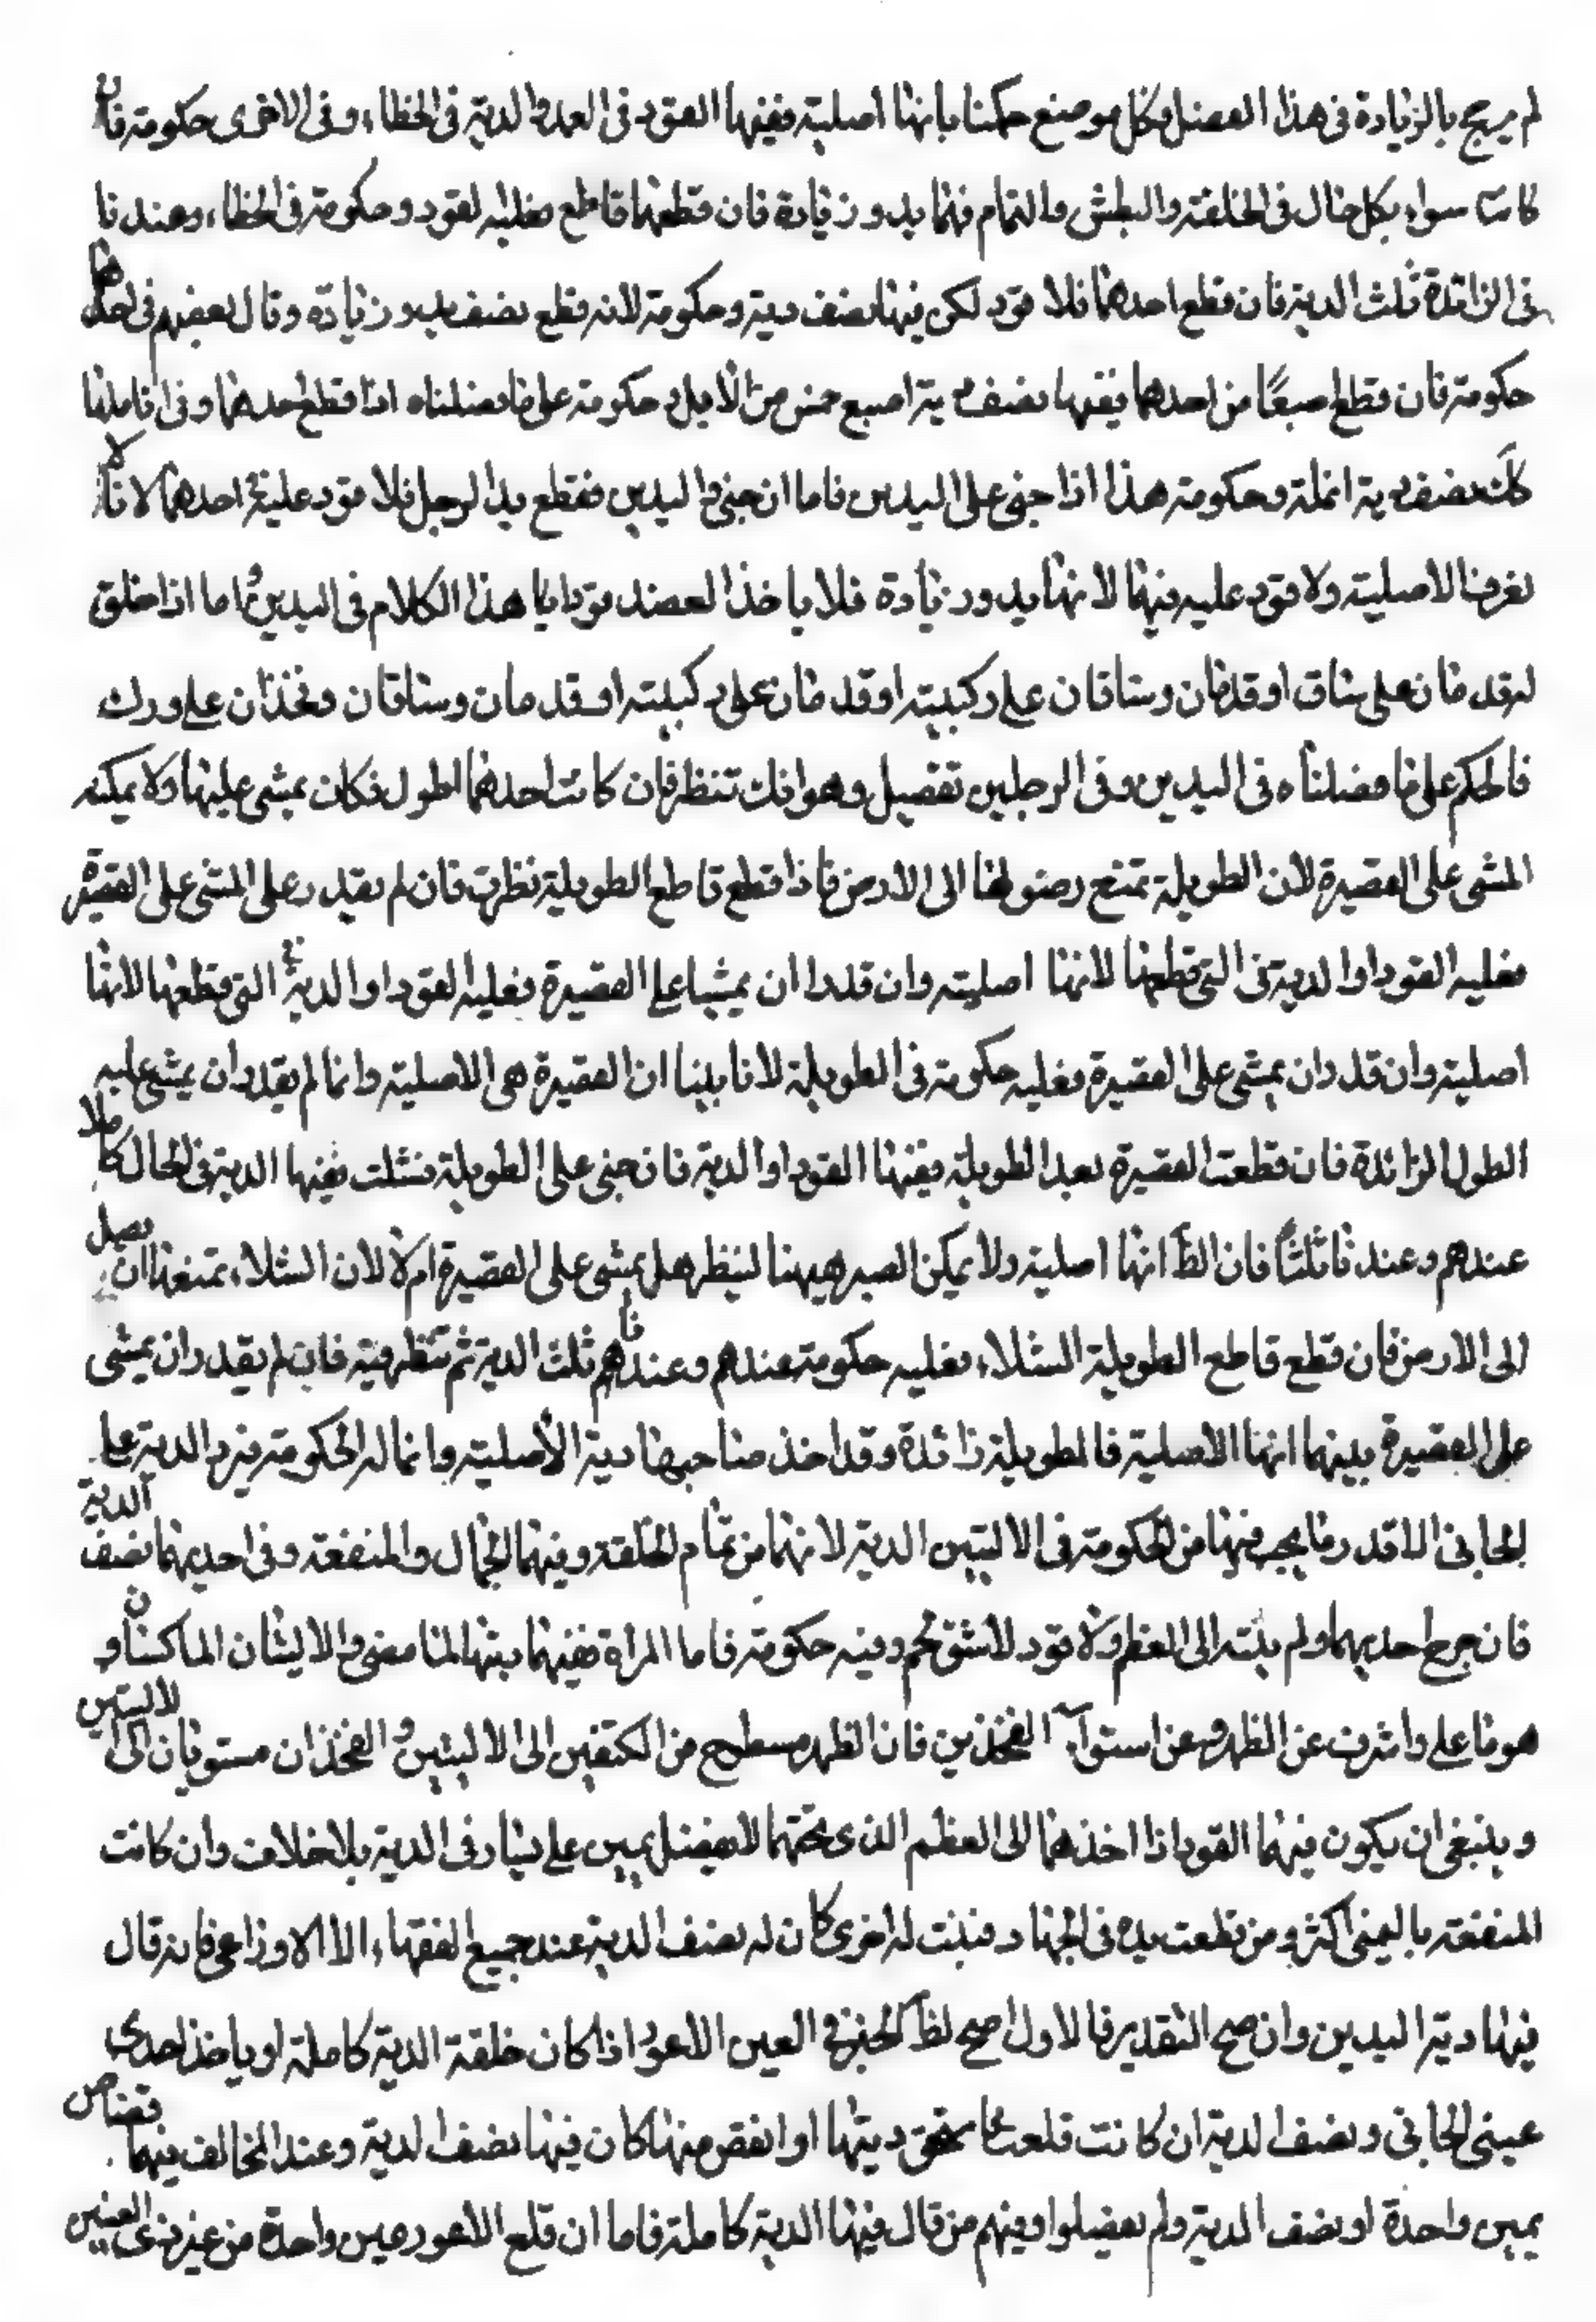 لم يرجح بالزيادة فى هذا الفصل وكل موضع حكمنا بانها اصلية ففيها القود فى العمد والدية فى الخطاء، وفى الاخرى حكومة فان
كانتا سواء بكل حال فى الخلقة والبطش والتمام فهما يد وزيادة فان قطعهما قاطع فعليه القود وحكومة فى الخطاء، وعندنا
فى الزائدة ثلث الدية فان قطع احدهما فلا قود لكن فيها نصف دية وحكومة لانه قطع نصف يد وزيادة وقال بعضهم فى احدهما
حكومة فان قطع اصبعًا من احدهما ففيها نصف دية اصبع خمس من الابل وحكومة على ما فصلناه اذا قطع احدهما وفى اناملها
كلّ نصف دية انملة وحكومة هذا اذا جنى على اليدين فاما ان جنى ذو اليدين فقطع يد الرجل فلا قود عليه فى احدهما لانا لا
نعرف الاصلية ولا قود عليه فيهما لانهما يد وزيادة فلا ياخذ العضد قودا يا هذا الكلام فى اليدين واما اذا خلق
له قدمان على ساق او قدمان وساقان على ركبته او قدمان على ركبته او قدمان وساقان وفخذان على ورك
فالحكم على ما فصلناه فى اليدين وفى الرجلين تفصيل وهو انك تنظر فان كانت احدهما اطول فكان يمشى عليها ولا يمكنه
المشى على القصيرة لان الطويلة تمنع وصولها الى الارض فاذا قطع قاطع الطويلة نظرت فان لم يقدر على المشى على القصيرة
فعليه القود او الدية فى التى قطعها لانها اصلية وان قدر ان يمشيا على القصيرة فعليه القود او الدية فى التى قطعها لانها
اصلية وان قدر ان يمشى على القصيرة فعليه حكومة فى الطويلة لانا بينا ان القصيرة هى الاصلية وانما لم يقدر ان يمشى عليه
الطول الزائدة فان قطعت القصيرة بعد الطويلة ففيها القود او الدية فان جنى على الطويلة فشلت ففيها الدية فى الحال كاملا
عندهم وعندنا ثلثا فان الظّ انها اصلية ولا يمكن الصبر هيهنا لينظر هل يمشى على القصيرة ام لا لان الشلاء تمنعها ان يصل
الى الارض فان قطع قاطع الطويلة الشلاء فعليه حكومة عندهم وعندنا ثلث الدية ثم تنظر فيه فان لم يقدر ان يمشى
على القصيرة بينهما انها الاصلية فالطويلة زائدة وقد اخذ صاحبها دية الاصلية وانما له الحكومة فيرد الدية على
الجانى الا قدر ما يجب فيها من الحكومة فى الاليتين الدية لانهما من تمام الخلقة وفيهما الجمال والمنفعة وفى احديهما نصف الدية
فان جرح احديهما ولم ينته الى العظم ولا قود لا نشق لحم وفيه حكومة فاما المراة ففيهما ديتها لما مضى والاليتان الماكمتان و
هو ما علا واشرف عن الظهر وعن استواء الفخذين فان الظهر مسطح من الكتفين الى الاليتين والفخذان مستويان الى الاليتين
وينبغى ان يكون فيهما القود اذا اخذهما الى العظم الذى تحتهما لا يفضل يمين على يسار فى الدية بلا خلاف وان كانت
المنفعة باليمنى اكثر ومن قطعت يده فى الجهاد فنبتت له اخرى كان له نصف الدية عند جميع الفقهاء، الا الاوزاعى فانه قال
فيها دية اليدين وان صح التقدير فالاول اصح لظ الخبر فى العين الاعور اذا كان خلقة الدية كاملة او ياخذ احدى
عينى الجانى ونصف الدية ان كانت قلعت فاستحق ديتها او اقتص منها كان فيها نصف الدية وعند المخالف فيهما قصاص
يمين واحدة او نصف الدية ولم يفصلوا ومنهم من قال فيها الدية كاملة فاما ان قلع الاعور عين واحدة من عين ذى العينين